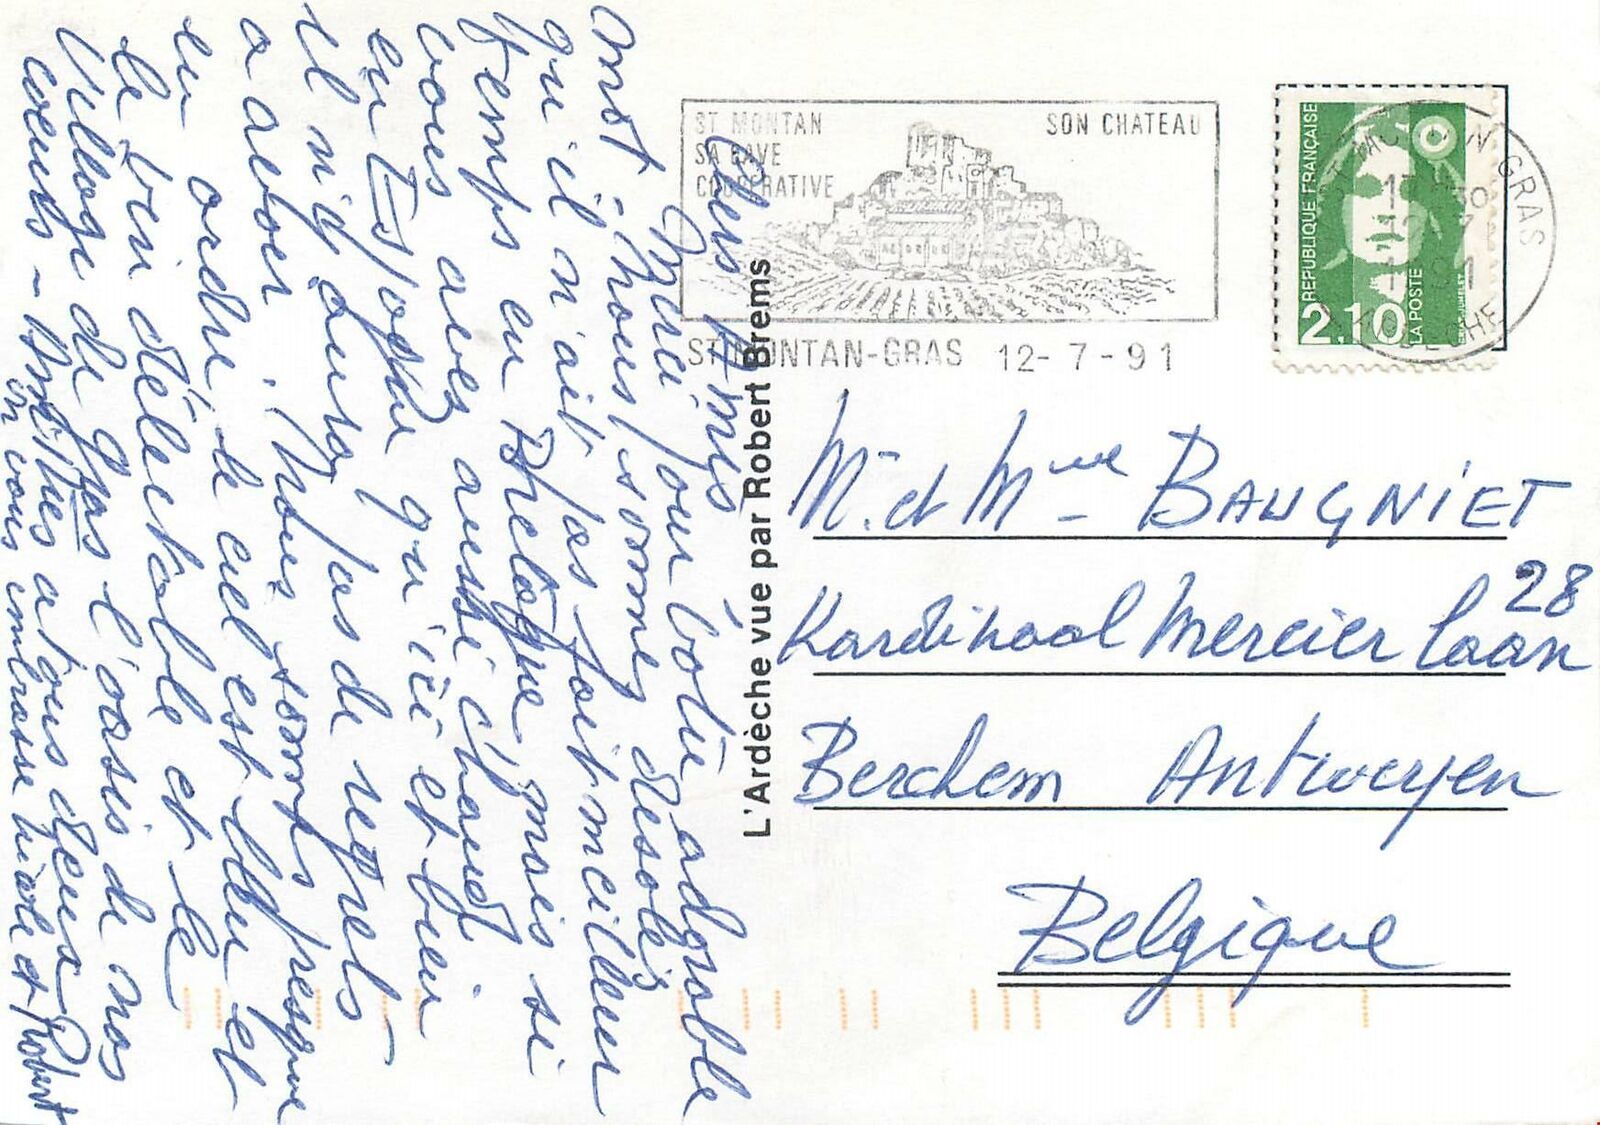 Chers Amis
Merci pour votre adorable
mot ! nous sommes désolés
qu'il n'ait pas fait meilleur
temps en Belgique mais si
vous avez aussi chaud
en Espagne qu'ici et bien
il n'y aura pas de regrets -
a avoir. Nous sommes presque
en ordre, le ciel est bleu et
le vin délectable et le
Village de Gras l'oasis de nos
coeurs - Amitiés a tous deux
on vous embrasse Nicole et Robert
L'Ardèche vue par Robert Brems
ST MONTAN
SA CAVE
COOPERATIVE
SON CHATEAU
ST MONTAN-GRAS 12-7-91
REPUBLIQUE FRANÇAISE
2.10
LA POSTE
ST MONTAN GRAS
ARDECHE
Mr. et Mme - BAUGNIET
Kardinaal Mercier laan 28
Berchem Antwerpen
Belgique